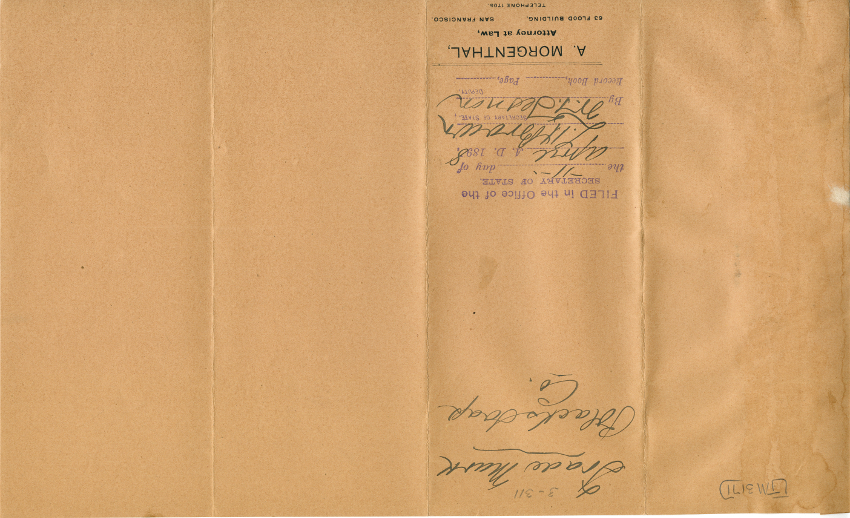 3-311
Trade Mark
Blacks Soap
Co.
FILED in the Office of the
SECRETARY OF STATE
the 11 day of
April A. D. 1898,
L. H. Brown
SECRETARY OF STATE.
By
DEPUTY.
Record Book, Page,
A. MORGENTHAL,
Attorney at Law,
63 FLOOD BUILDING, SAN FRANCISCO.
TELEPHONE 1706.
TM3171